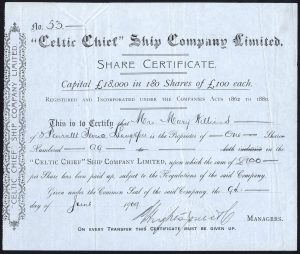 No. 53.
"Celtic Chief" Ship Company Limited.
SHARE CERTIFICATE.
Capital £18,000 in 180 Shares of £100 each.
Registered and Incorporated under the Companies Acts 1862 to 1880.
This is to Certify that Mrs. Mary Williams
of Terrace is the Proprietor of One Share
Numbered 99 to both inclusive in the
"CELTIC CHIEF" SHIP COMPANY LIMITED, upon which the sum of £100
per Share has been paid up, subject to the Regulations of the said Company.
Given under the Common Seal of the said Company the 9th
day of June 1909
MANAGERS.
ON EVERY TRANSFER THIS CERTIFICATE MUST BE GIVEN UP.
CELTIC CHIEF SHIP COMPANY LIMITED.